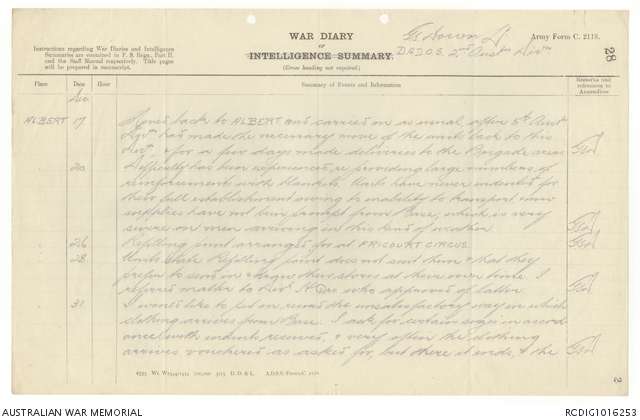 WAR DIARY
or
INTELLIGENCE SUMMARY.
(Erase heading not required.)
Instructions regarding War Diaries and Intelligence
Summaries are contained in F. S. Regs., Part II.
and the Staff Manual respectively. Title pages
will be prepared in manuscript.
D.A.D.O.S. 2nd Aust. Divn
Army Form C. 2118.
28
Place Date Hour Summary of Events and Information Remarks and references to Appendices
Dec
ALBERT 17 back to ALBERT and carried on as usual, after 5th Aust
Divn has made the necessary move of the units back to this
& for a few days made deliveries to the Brigade areas
20 Difficulty has been experienced, re providing large numbers of
reinforcements with blankets. Units have never indented for
their full establishment owing to inability to transport, now
supplies have not been prompt from Base, which is very
severe on men arriving in this kind of weather
26 Refilling point arranged for at FRICOURT CIRCUS
28 Units state Refilling point does not suit them & that they
prefer to send in & their stores at their own time. I
referred matter to Div. H.Qrs who approves of latter.
31 I would like to put on record the unsatisfactory way in which
clothing arrives from Base. I ask for certain sizes in accord
ance with indents received, & very often the clothing
arrives vouchered as asked for, but there it ends, & the
2
A.D.S.S./Forms/C. 2118.
AUSTRALIAN WAR MEMORIAL
RCDIG1016253